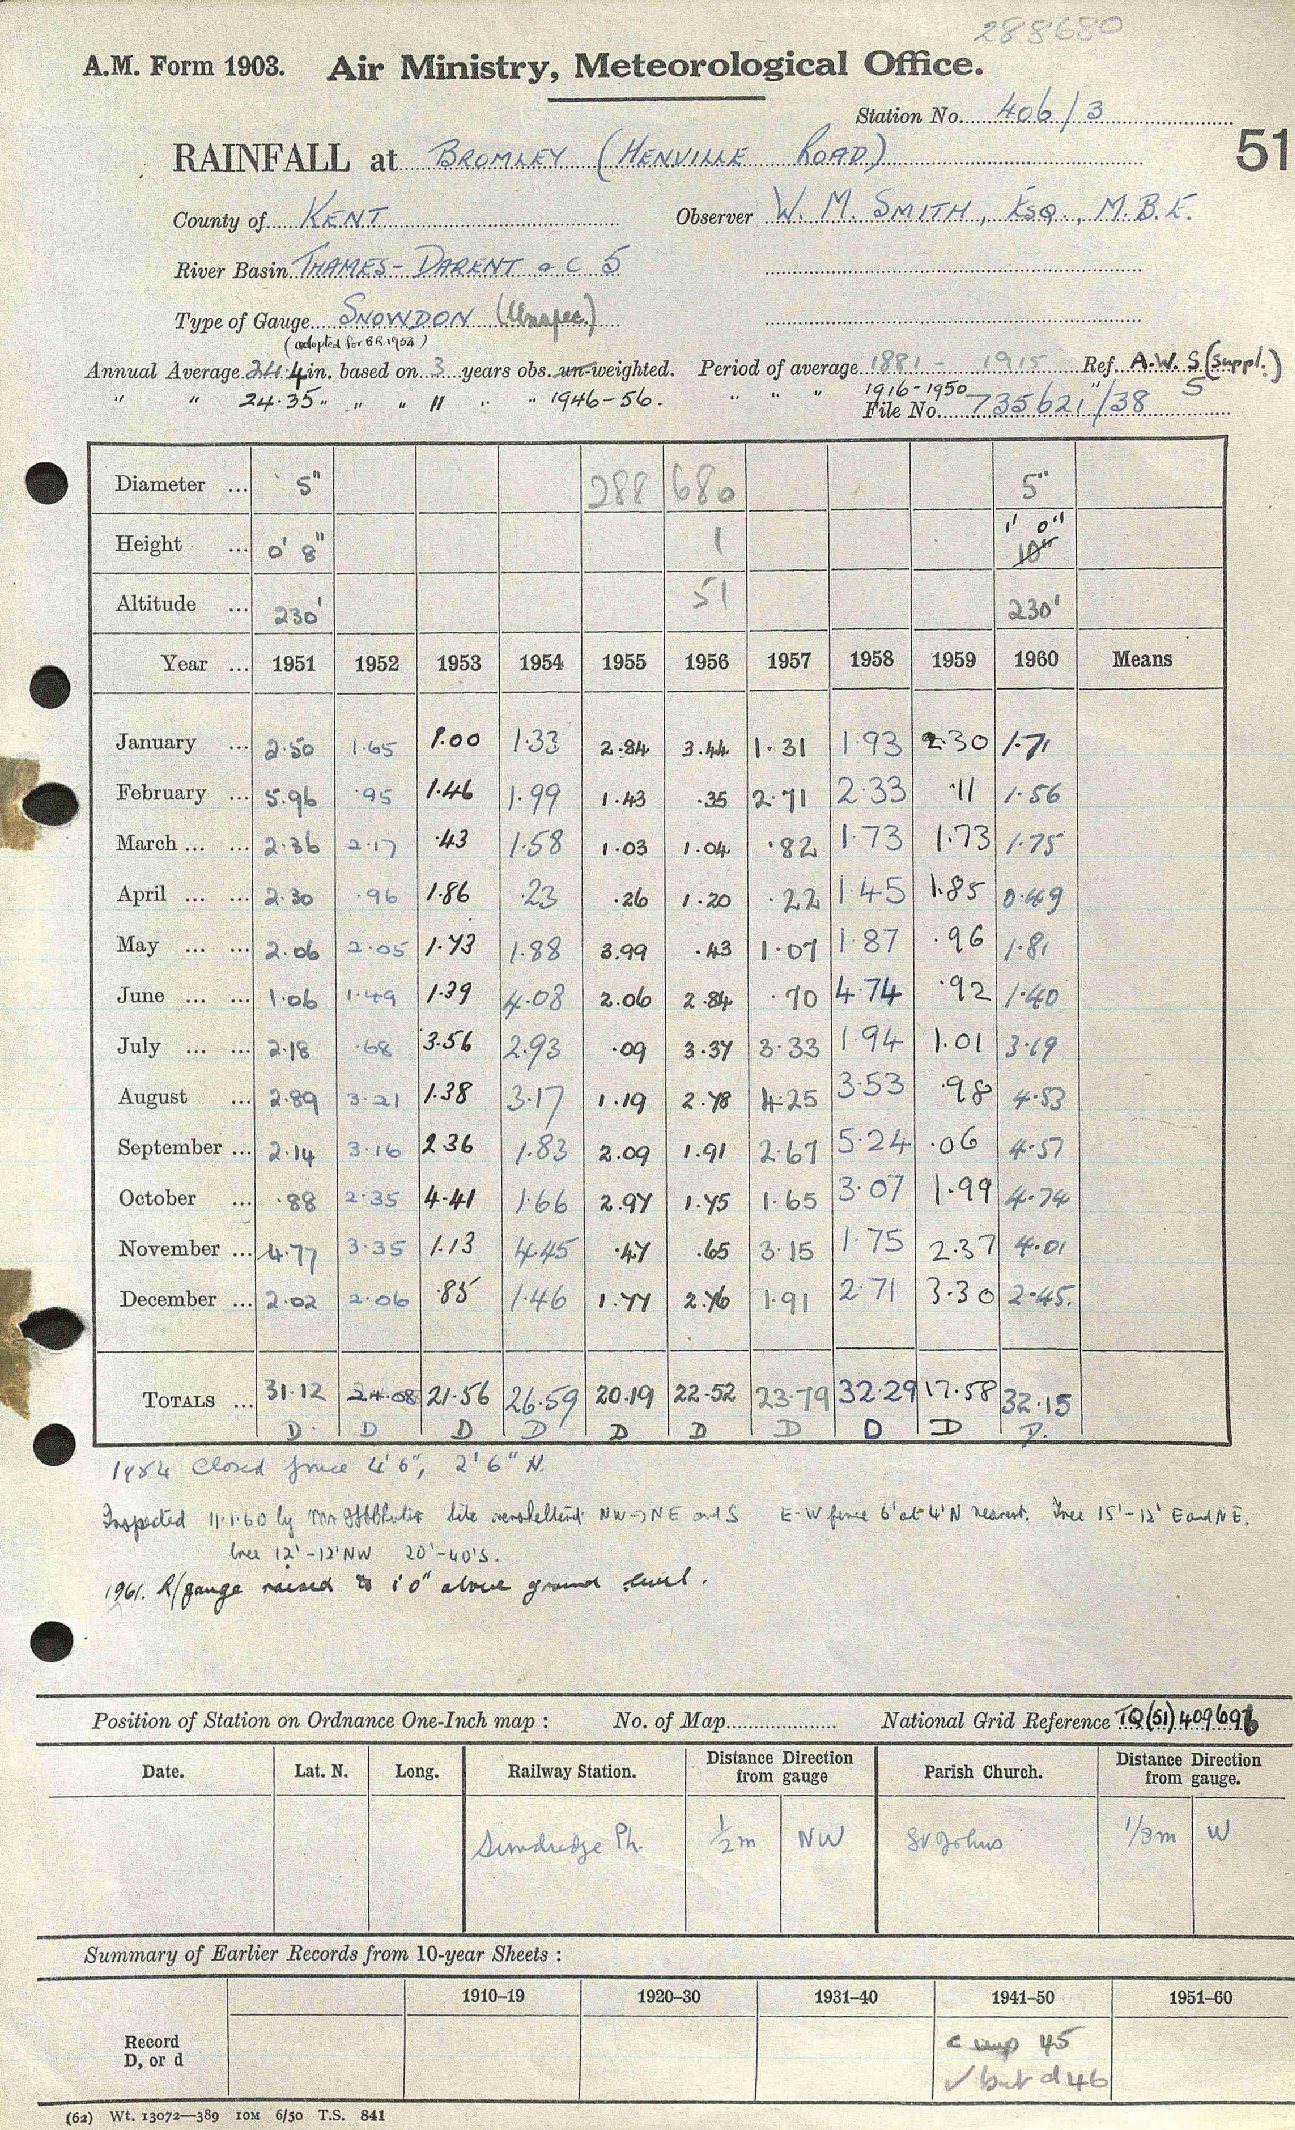 288680
A.M. Form 1903. Air Ministry, Meteorological Office.
Station No. 406/3
51
RAINFALL at BROMLEY (HENVILLE ROAD)
County of KENT Observer W. M. SMITH, ESQ., M.B.E.
River Basin THAMES-DARENT & C 5
Type of Gauge SNOWDON (Unspec.)
(adopted for BR 1954)
Annual Average 24.4 in. based on 3 years obs. un-weighted. Period of average 1881 - 1915 Ref. A.W.S (Suppl.)
" " 24.35 " " " 11 " " 1946-56. " " " 1916-1950 " 5
File No. 735621/38
Diameter ... 5" 288 680 5"
Height ... 0' 8" 1 10" 1' 0"
Altitude ... 230' 51 230'
Year ... 1951 1952 1953 1954 1955 1956 1957 1958 1959 1960 Means
January ... 2.50 1.65 1.00 1.33 2.84 3.44 1.31 1.93 2.30 1.71
February ... 5.96 .95 1.46 1.99 1.43 .35 2.71 2.33 .11 1.56
March ... ... 2.36 2.17 .43 1.58 1.03 1.04 .82 1.73 1.73 1.75
April ... ... 2.30 .96 1.86 .23 .26 1.20 .22 1.45 1.85 0.49
May ... ... 2.06 2.05 1.73 1.88 3.99 .43 1.07 1.87 .96 1.81
June ... ... 1.06 1.49 1.39 4.08 2.06 2.84 .70 4.74 .92 1.40
July ... ... 2.18 .68 3.56 2.93 .09 3.37 3.33 1.94 1.01 3.19
August ... 2.89 3.21 1.38 3.17 1.19 2.78 4.25 3.53 .98 4.53
September ... 2.14 3.16 2.36 1.83 2.09 1.91 2.67 5.24 .06 4.57
October ... .88 2.35 4.41 1.66 2.97 1.75 1.65 3.07 1.99 4.74
November ... 4.77 3.35 1.13 4.45 .47 .65 3.15 1.75 2.37 4.01
December ... 2.02 2.06 .85 1.46 1.77 2.76 1.91 2.71 3.30 2.45.
TOTALS ... 31.12 24.08 21.56 26.59 20.19 22.52 23.79 32.29 17.58 32.15
D. D D D D D D D D D.
1954 Closed fence 4'6", 2'6" N.
Inspected 11.1.60 by Mr Site NW→NE and S E-W fence 6' at 4'N nearest. Tree 15'-12' E and NE,
tree 12'-12'NW 20'-40'S.
1961. R/gauge raised to 1'0" above ground level.
Position of Station on Ordnance One-Inch map : No. of Map National Grid Reference TQ(51)409696
Date. Lat. N. Long. Railway Station. Distance Direction from gauge Parish Church. Distance Direction from gauge.
Sundridge Pk. 1/2 m NW St Johns 1/3 m W
Summary of Earlier Records from 10-year Sheets :
1910–19 1920–30 1931–40 1941–50 1951–60
Record
D, or d
45
✓ but d 46
(62) Wt. 13072—389 10M 6/50 T.S. 841